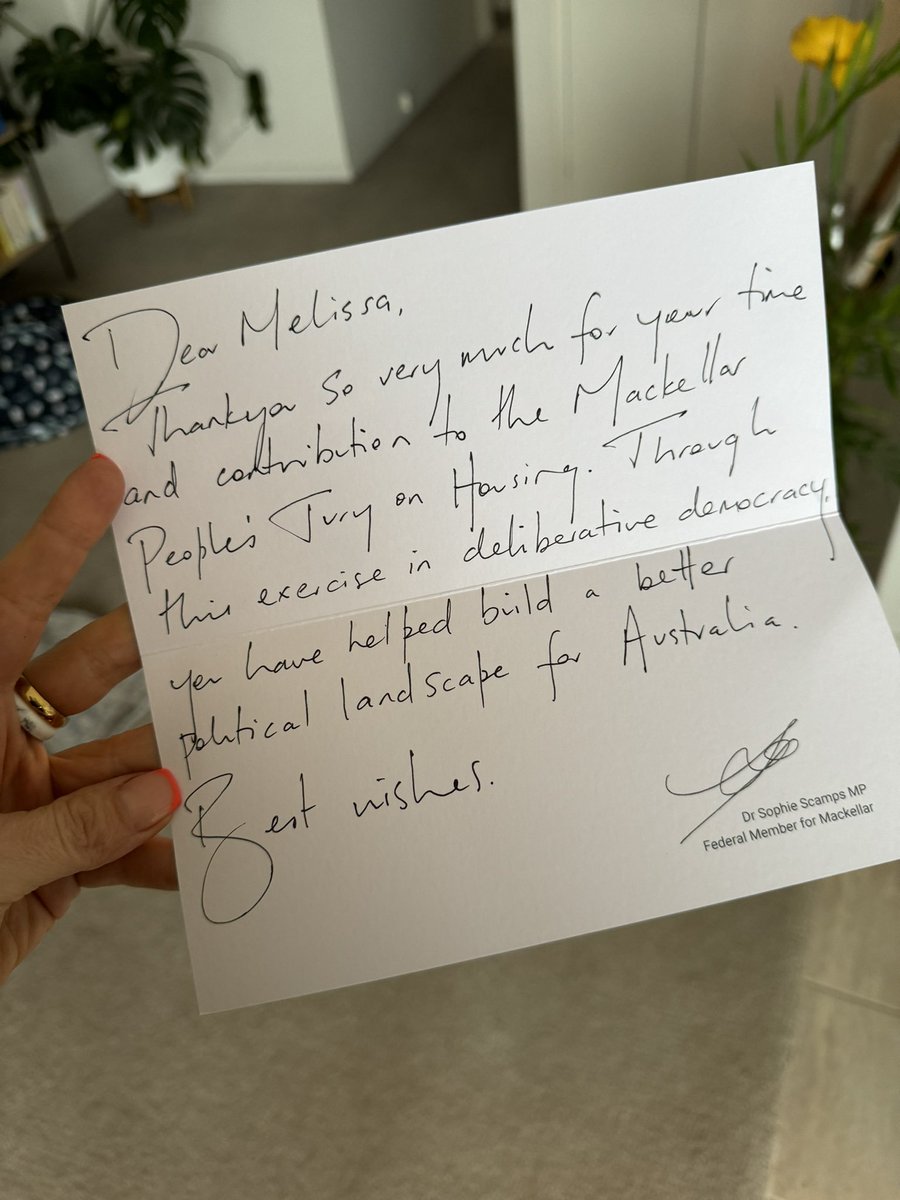 Dear Melissa,
Thankyou so very much for your time
and contribution to the Mackellar
People's Jury on Housing. Through
this exercise in deliberative democracy,
you have helped build a better
political landscape for Australia.
Best wishes.
Dr Sophie Scamps MP
Federal Member for Mackellar